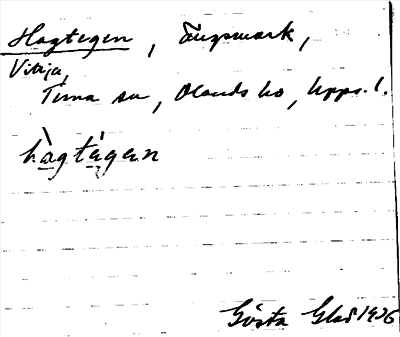 Hagtegen, ängsmark,
Vitija,
Tierna sn, Olands hd, Upps. l.
hàgtègen
Gösta Glad 1936